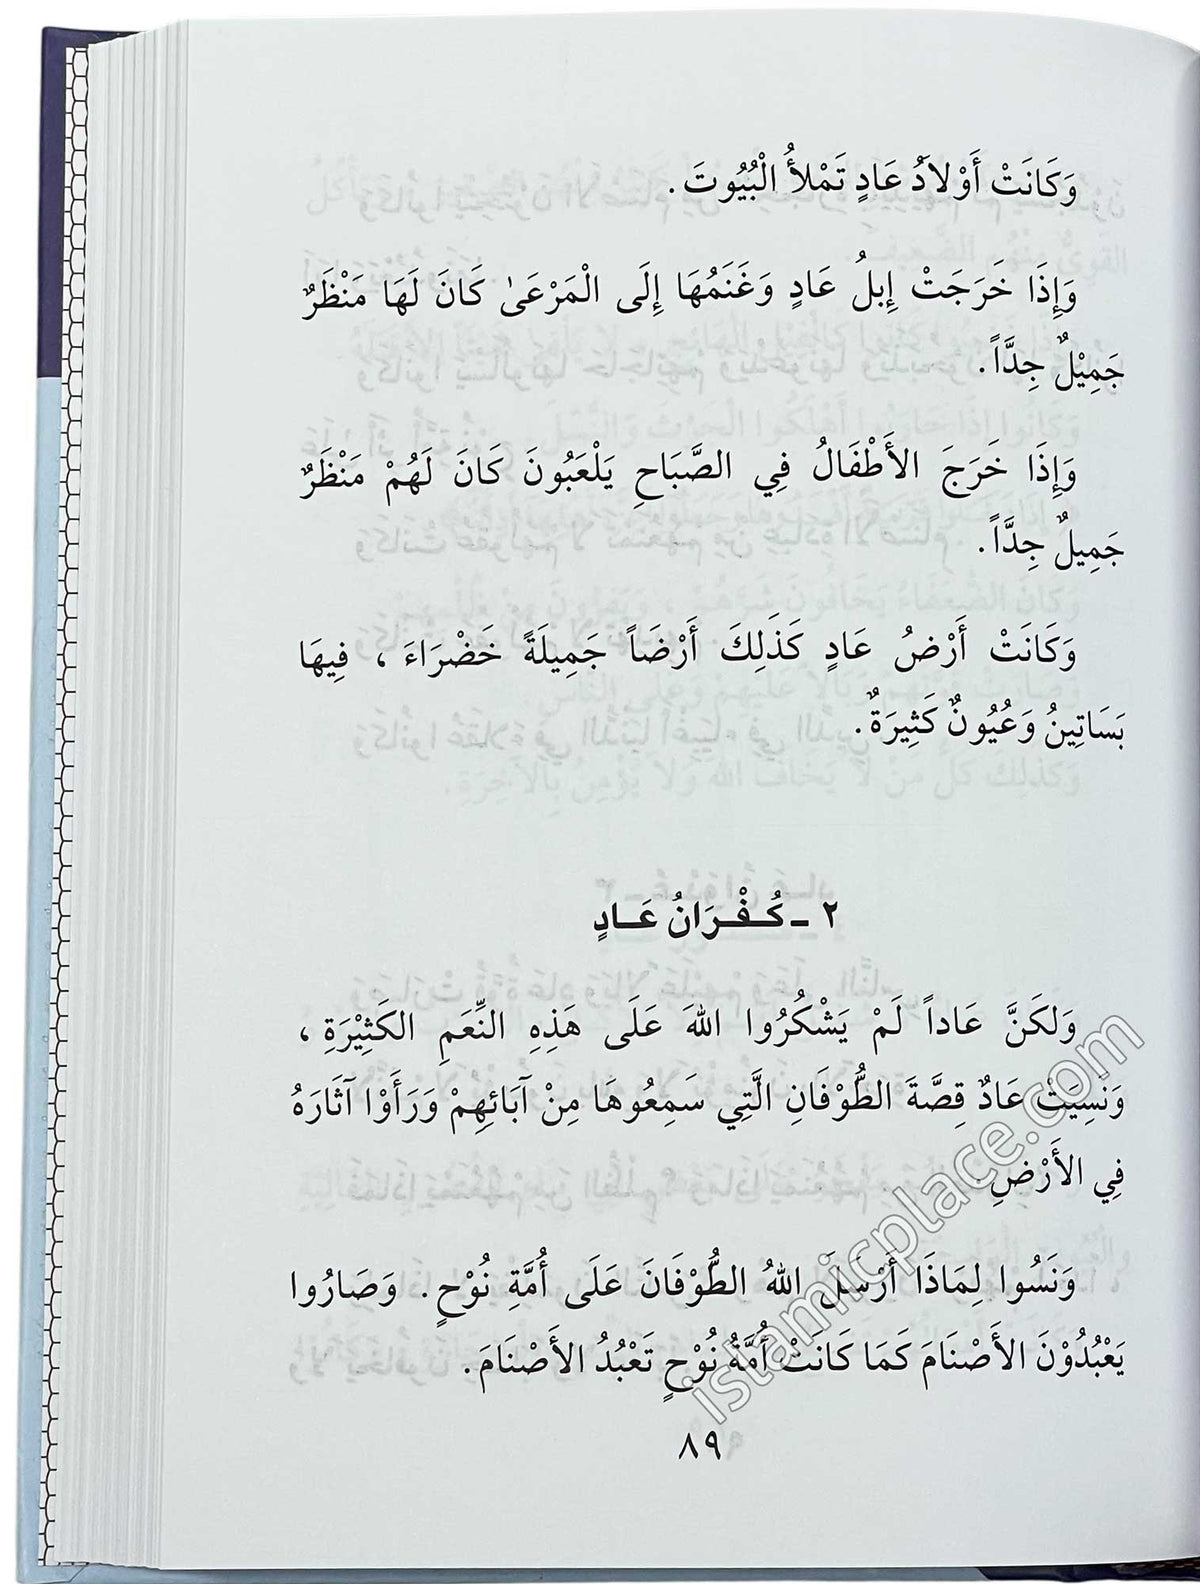 وَكَانَتْ أَوْلاَدُ عَادٍ تَمْلأُ الْبُيُوتَ.
وَإِذَا خَرَجَتْ إِبِلُ عَادٍ وَغَنَمُهَا إِلَى الْمَرْعَىٰ كَانَ لَهَا مَنْظَرٌ
جَمِيْلٌ جِدَّاً.
وَإِذَا خَرَجَ الأَطْفَالُ فِي الصَّبَاحِ يَلْعَبُونَ كَانَ لَهُمْ مَنْظَرٌ
جَمِيلٌ جِدَّاً.
وَكَانَتْ أَرْضُ عَادٍ كَذَلِكَ أَرْضَاً جَمِيلَةً خَضْرَاءَ ، فِيهَا
بَسَاتِينُ وَعُيُونٌ كَثِيرَةٌ.
٢ ـ كُـفْـرَانُ عَـادٍ
وَلكَنَّ عَاداً لَمْ يَشْكُرُوا اللهَ عَلَى هَذِهِ النِّعَمِ الكَثِيْرَةِ ،
وَنَسِيَتْ عَادٌ قِصَّةَ الطُّوْفَانِ الَّتِي سَمِعُوهَا مِنْ آبَائِهِمْ وَرَأَوْا آثَارَهُ
فِي الأَرْضِ.
وَنَسُوا لِمَاذَا أَرْسَلَ اللهُ الطُّوْفَانَ عَلَى أُمَّةِ نُوْحٍ. وَصَارُوا
يَعْبُدُوْنَ الأَصْنَامَ كَمَا كَانَتْ أُمَّةُ نُوْحٍ تَعْبُدُ الأَصْنَامَ.
٨٩
islamicplace.com